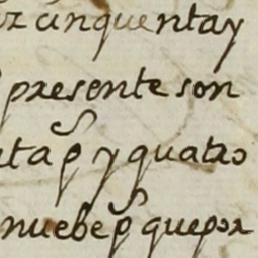 z cinquenta y
presente son
ta p^s y quatro
nuebe p^s que por